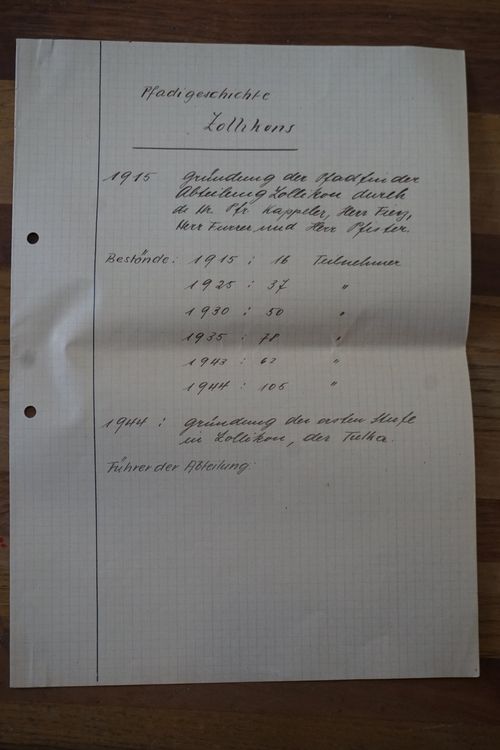 Pfadigeschichte
Zollikons
1915 Gründung der Pfadfinder
Abteilung Zollikon durch
d. H. Pfr. Kappeler, Herr
Herr Furrer, und Herr Pfister.
Bestände: 1915 : 16 Teilnehmer
1925 : 37 "
1930 : 50 "
1935 : 78 "
1943 : 62 "
1944 : 105 "
1944 : Gründung der ersten Stufe
in Zollikon, der
Führer der Abteilung: